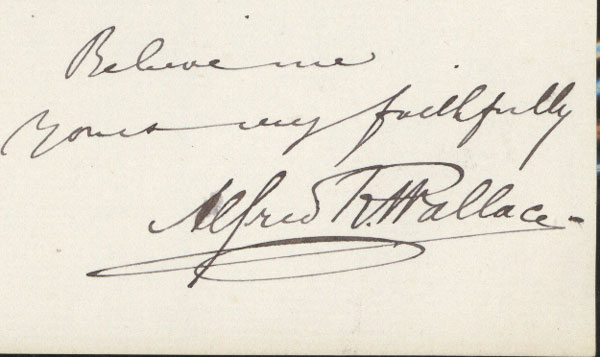 Believe me
Yours very faithfully
Alfred R. Wallace